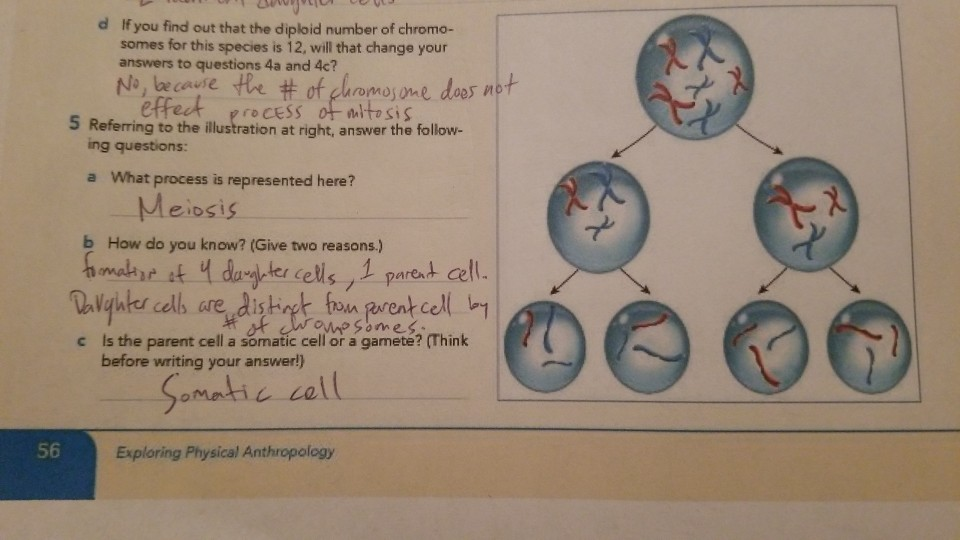 daughter cells
d If you find out that the diploid number of chromo-
somes for this species is 12, will that change your
answers to questions 4a and 4c?
No, because the # of chromosome does not
effect process of mitosis
5 Referring to the illustration at right, answer the follow-
ing questions:
a What process is represented here?
Meiosis
b How do you know? (Give two reasons.)
formation of 4 daughter cells, 1 parent cell.
Daughter cells are distinct from parent cell by
# of chromosomes.
c Is the parent cell a somatic cell or a gamete? (Think
before writing your answer!)
Somatic cell
56 Exploring Physical Anthropology